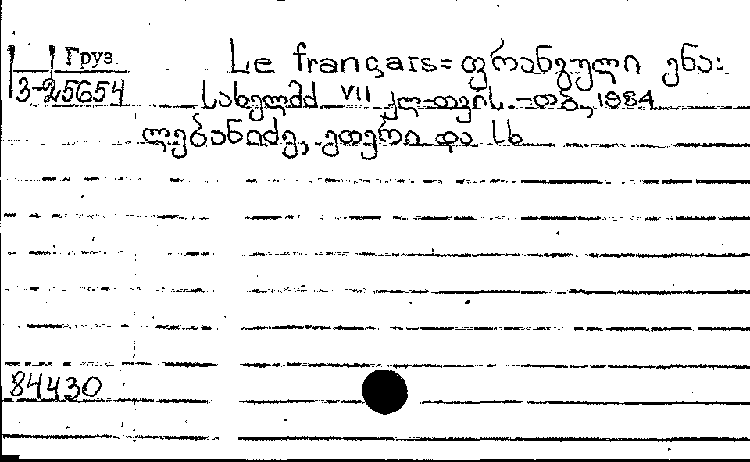 Груз
3-25654
Le français = ფრანგული ენა:
სახელმძ VII კლ-თვის. -თბ., 1984
ლებანიძე, ეთერი და სხ
84430